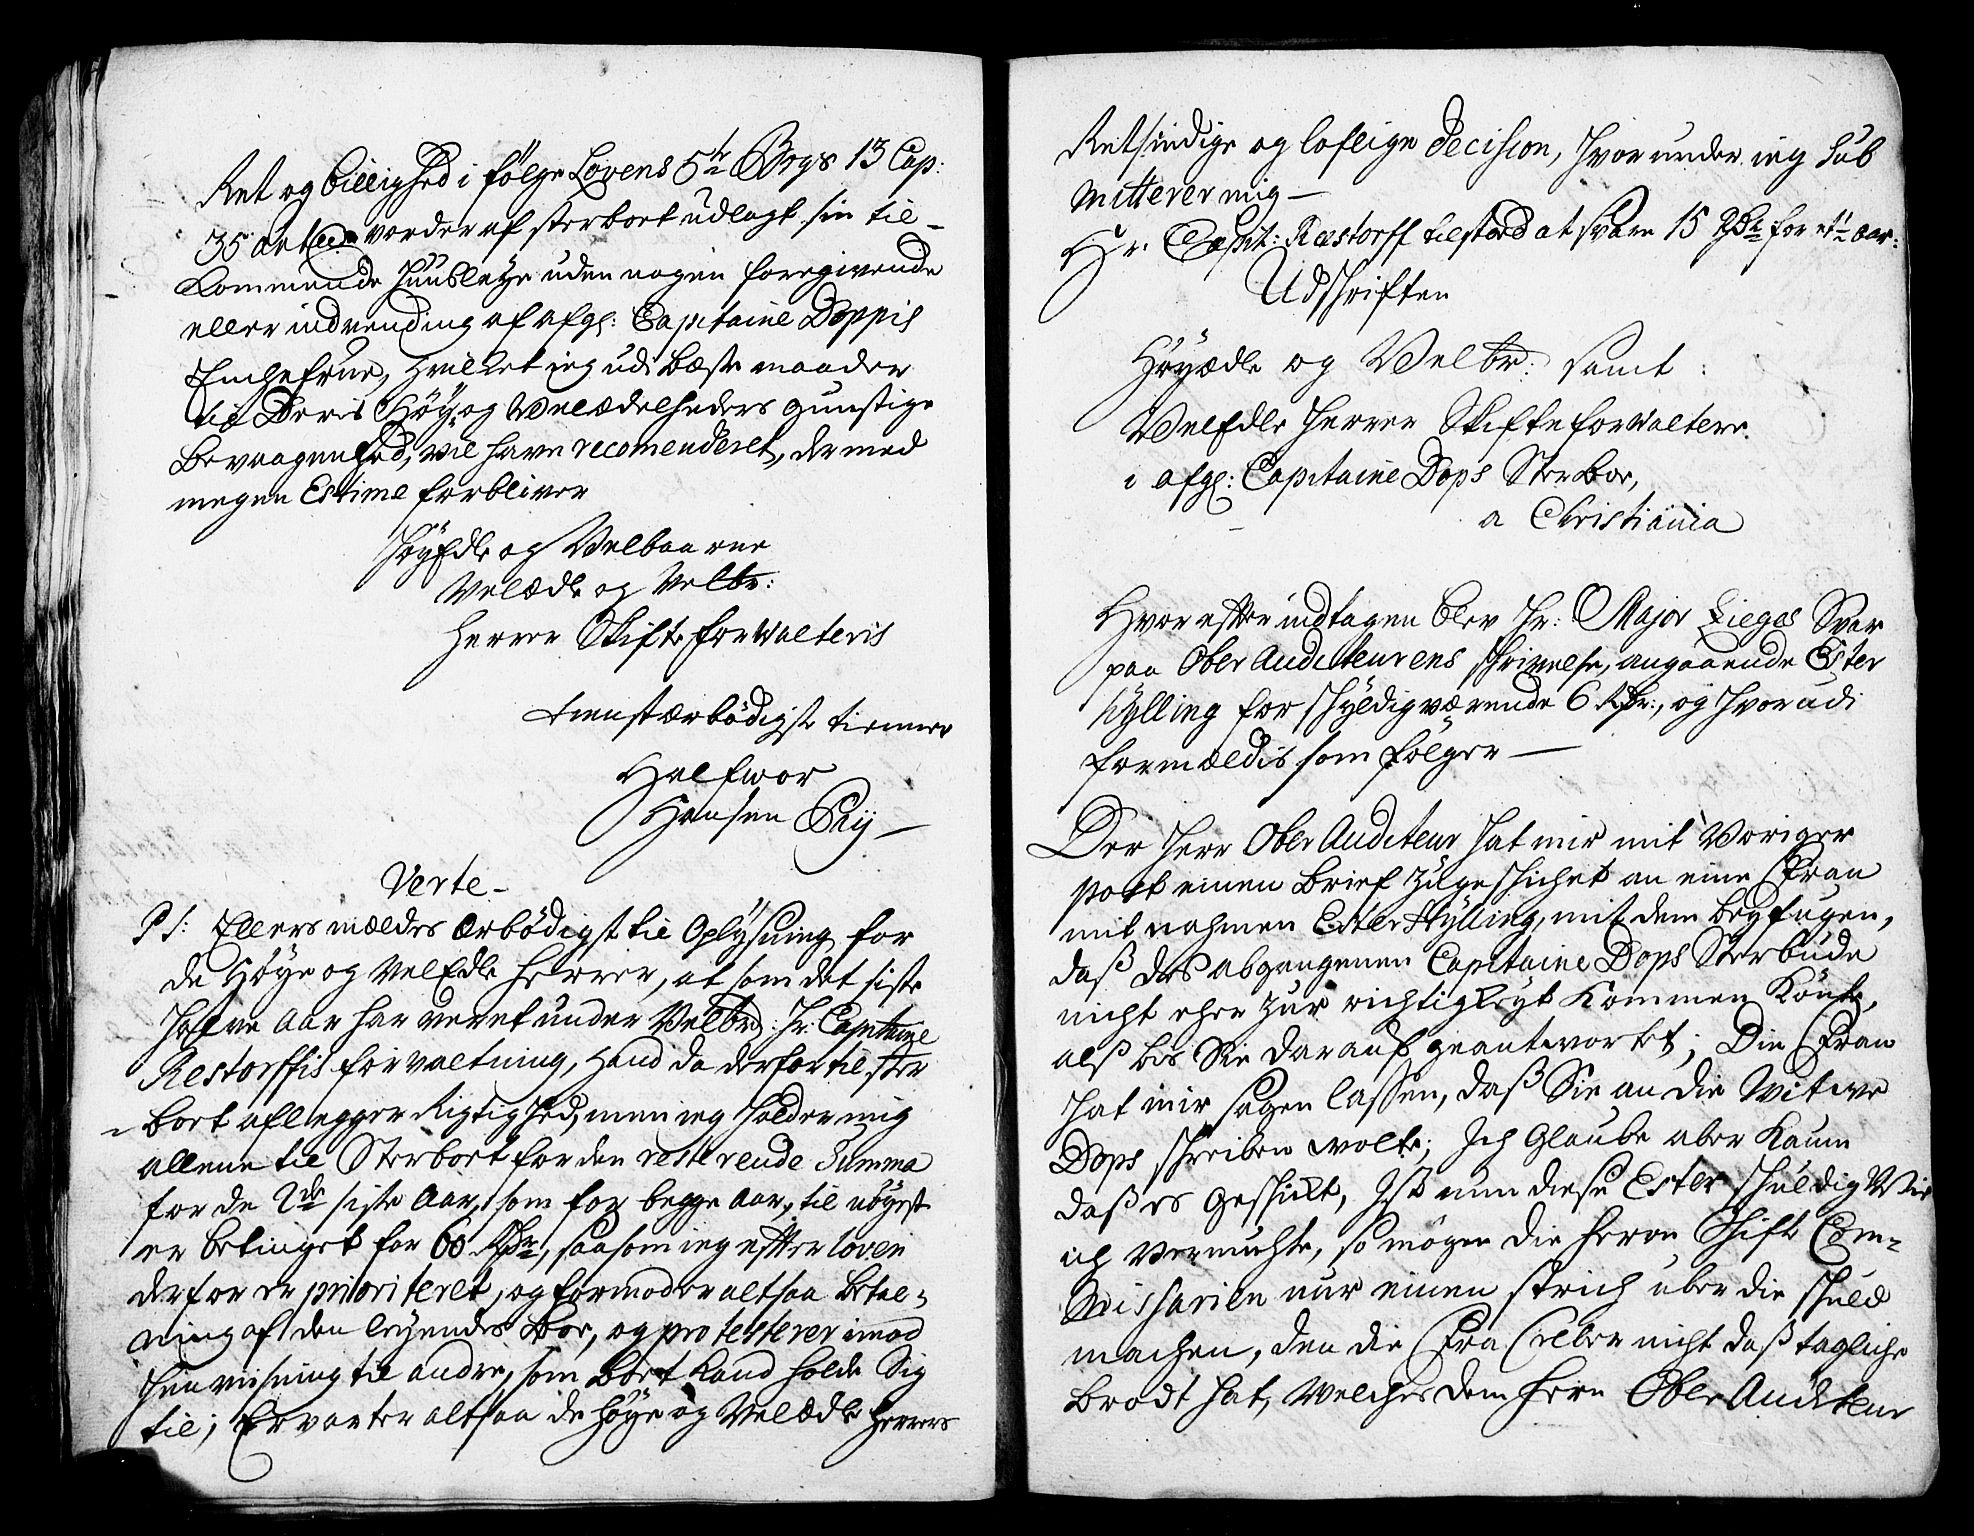 Ret og billighed i følge Lovens 5te Bogs 13 Cap:
35 art vorder af sterboet udlagt sin til-
kommende Huusleye uden nogen foregivende
eller indvending af afg: Capitaine Doppis
Enchefrue, hvilket ieg udi bæste maader
til Deris Höy og Velædelheders gunstige
bevaagenhed, vil have recomenderet, der med
megen Estime forbliver
HöyEdle og Velbaarne
Velædle og Velbr:
Herrer Skifteforwalteris
tienstærbödigste tienner
Halfwor
Hansen Rij
Verte-
PS: Ellers mældes ærbödigst til Oplÿsning for
de Höye og VelEdle Herrer, at som det siste
halve Aar har veret under Velbr: Hr: Capitaine
Restorffis forvaltning, hand da derfor til ster
boet aflegger Rigtighed, men ieg holder mig
allene til Sterboet for den resterende Summa
for de 2de siste Aar, som for begge Aar, til
er betinget for 60 Rdr, saasom ieg efter loven
derfor er prioriteret, og formoder altsaa betal-
ning af den leyendes Boe, og protesterer imod
henviisning til andre, som Boet kand holde Sig
til; Ervarter altsaa de Höye og Velædle Herrers
Retsindige og loflige Decision, hvorunder ieg sub
mitterer mig
Hr. Capit: Restorff tilstoed at svare 15 Rdr for et ½ aar:
Udskriften
Höyædle og Velbr: samt
VelEdle Herrer Skifteforwaltere
i afg: Capitaine Dops Sterboe,
a Christiania
Hvor efter indtagen blev Hr: Major Lieges Svar
paa Ober Auditeurens skrivelse, angaaende Ester
Kylling for skyldigværende 6 Rdr:, og hvorudi
formældis som fölger
Der Herr Ober Auditeur hat mir mit Voriger
Post einen Brief zugeschicket an eine Frau
mit nahmen Ester Kylling, mit dem beyfugen,
daß des abgangenen Capitaine Dops Sterbude
nicht eher zur richtigkeyt kommen könte,
alß bis Sie darauf geantwortet; Die Frau
hat mir sagen lassen, daß Sie an die Witwe
Dops schreiben wolte; Ich Glaube aber kaum
daß es geschickt, Ist nun diese Ester schuldig Wie
ich vermuhte, so mögen die Herrn Schift Com-
missarien nur einen strich uber die schuld
machen, den die Fra selber nicht daß tagliche
brodt hat, Welches dem Herrn Ober Auditeur